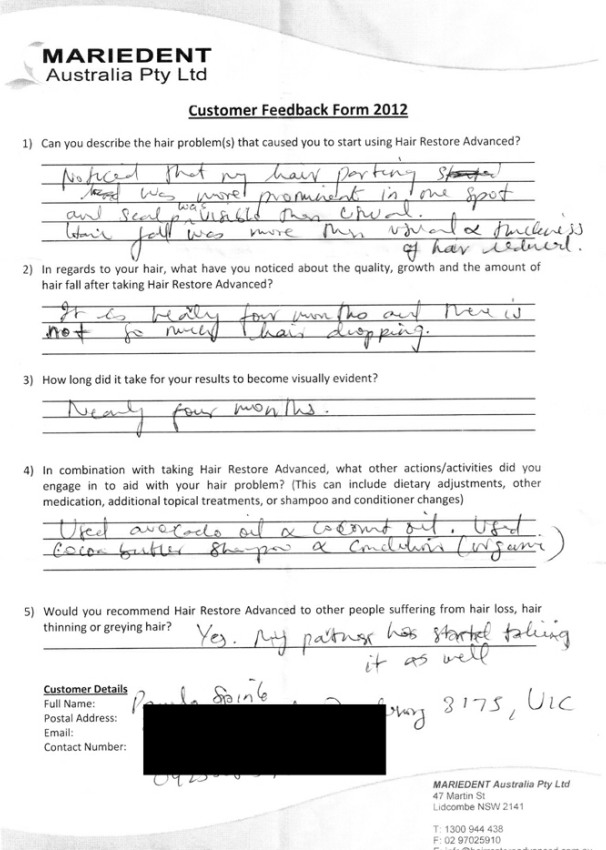 MARIEDENT
Australia Pty Ltd
Customer Feedback Form 2012
1) Can you describe the hair problem(s) that caused you to start using Hair Restore Advanced?
Noticed that my hair parting started
was more prominent in one spot
and scalp was visible than usual.
Hair fall was more than usual & thickness
of hair reduced.
2) In regards to your hair, what have you noticed about the quality, growth and the amount of
hair fall after taking Hair Restore Advanced?
It is nearly four months and there is
not so much hair dropping.
3) How long did it take for your results to become visually evident?
Nearly four months.
4) In combination with taking Hair Restore Advanced, what other actions/activities did you
engage in to aid with your hair problem? (This can include dietary adjustments, other
medication, additional topical treatments, or shampoo and conditioner changes)
Used avocado oil & coconut oil. Used
Cocoa butter Shampoo & Condition (organic)
5) Would you recommend Hair Restore Advanced to other people suffering from hair loss, hair
thinning or greying hair? Yes. My partner has started taking
it as well
Customer Details
Full Name: Pamela
Postal Address: 3175, VIC
Email:
Contact Number:
MARIEDENT Australia Pty Ltd
47 Martin St
Lidcombe NSW 2141
T: 1300 944 438
F: 02 97025910